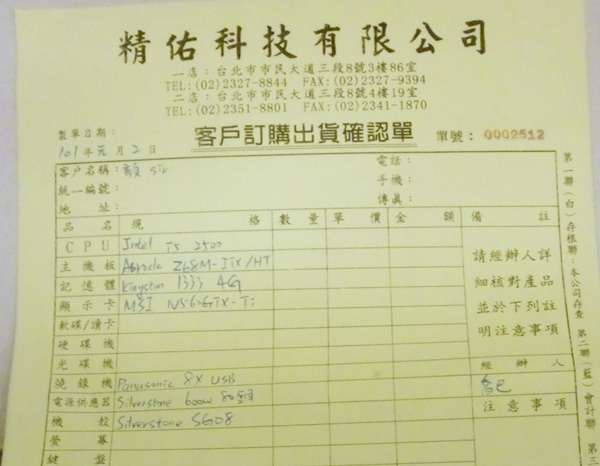 精佑科技有限公司
一店：台北市市民大道三段8號3樓86室
TEL:(02)2327-8844 FAX:(02)2327-9394
二店：台北市市民大道三段8號4樓19室
TEL:(02)2351-8801 FAX:(02)2341-1870
製單日期：
客戶訂購出貨確認單 單號：0002512
101年元月2日
客戶名稱： sir 電話：
統一編號： 手機：
地址： 傳眞：
品名 規格 數量 單價 金額 備註
CPU Intel I5 2500
主機板 Asrock Z68M-ITX/HT
記憶體 Kingston 1333 4G
顯示卡 MSI N560GTX-Ti
軟碟/讀卡
硬碟機
光碟機
燒錄機 Panasonic 8X USB
電源供應器 Silverstone 600W 80
機殼 Silverstone SG08
螢幕
鍵盤
請經辦人詳
細核對產品
並於下列註
明注意事項
經辦人
注意事項
第一聯(白)存根聯：本公司存查 第二聯(藍)會計聯 第三